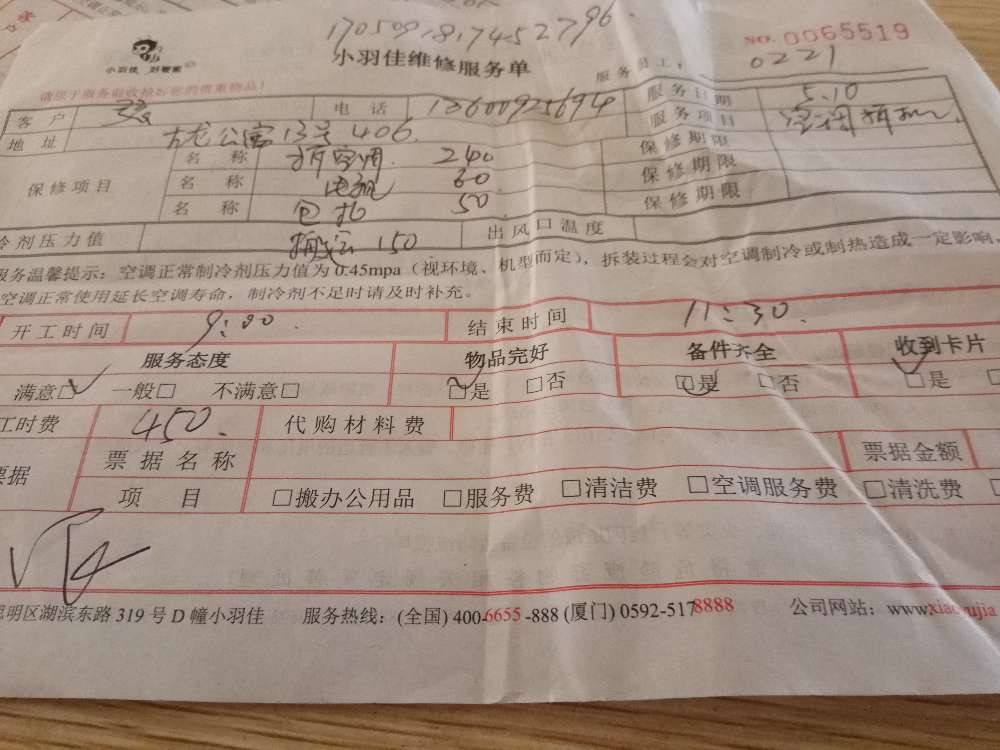 1705091817452796
NO.0065519
小羽佳 好管家
小羽佳维修服务单
服务员工: 0221
请您于服务前收拾好您的贵重物品!
客户 电话 13600925694 服务日期 5.10
地址 古龙公寓13号406 服务项目 空调拆机
保修项目 名称 拆空调 240 保修期限
名称 60 保修期限
名称 50 保修期限
冷剂压力值 搬运 150 出风口温度
服务温馨提示:空调正常制冷剂压力值为0.45mpa(视环境、机型而定),拆装过程会对空调制冷或制热造成一定影响、
空调正常使用延长空调寿命,制冷剂不足时请及时补充。
开工时间 9:00. 结束时间 11:30.
服务态度 物品完好 备件齐全 收到卡片
满意□ 一般□ 不满意□ □是 □否 □是 □否 □是
工时费 450. 代购材料费
票据 票据名称 票据金额
项目 □搬办公用品 □服务费 □清洁费 □空调服务费 □清洗费
思明区湖滨东路 319 号 D 幢小羽佳 服务热线:(全国) 400-6655-888 (厦门) 0592-5178888 公司网站:www.xiaoyujia